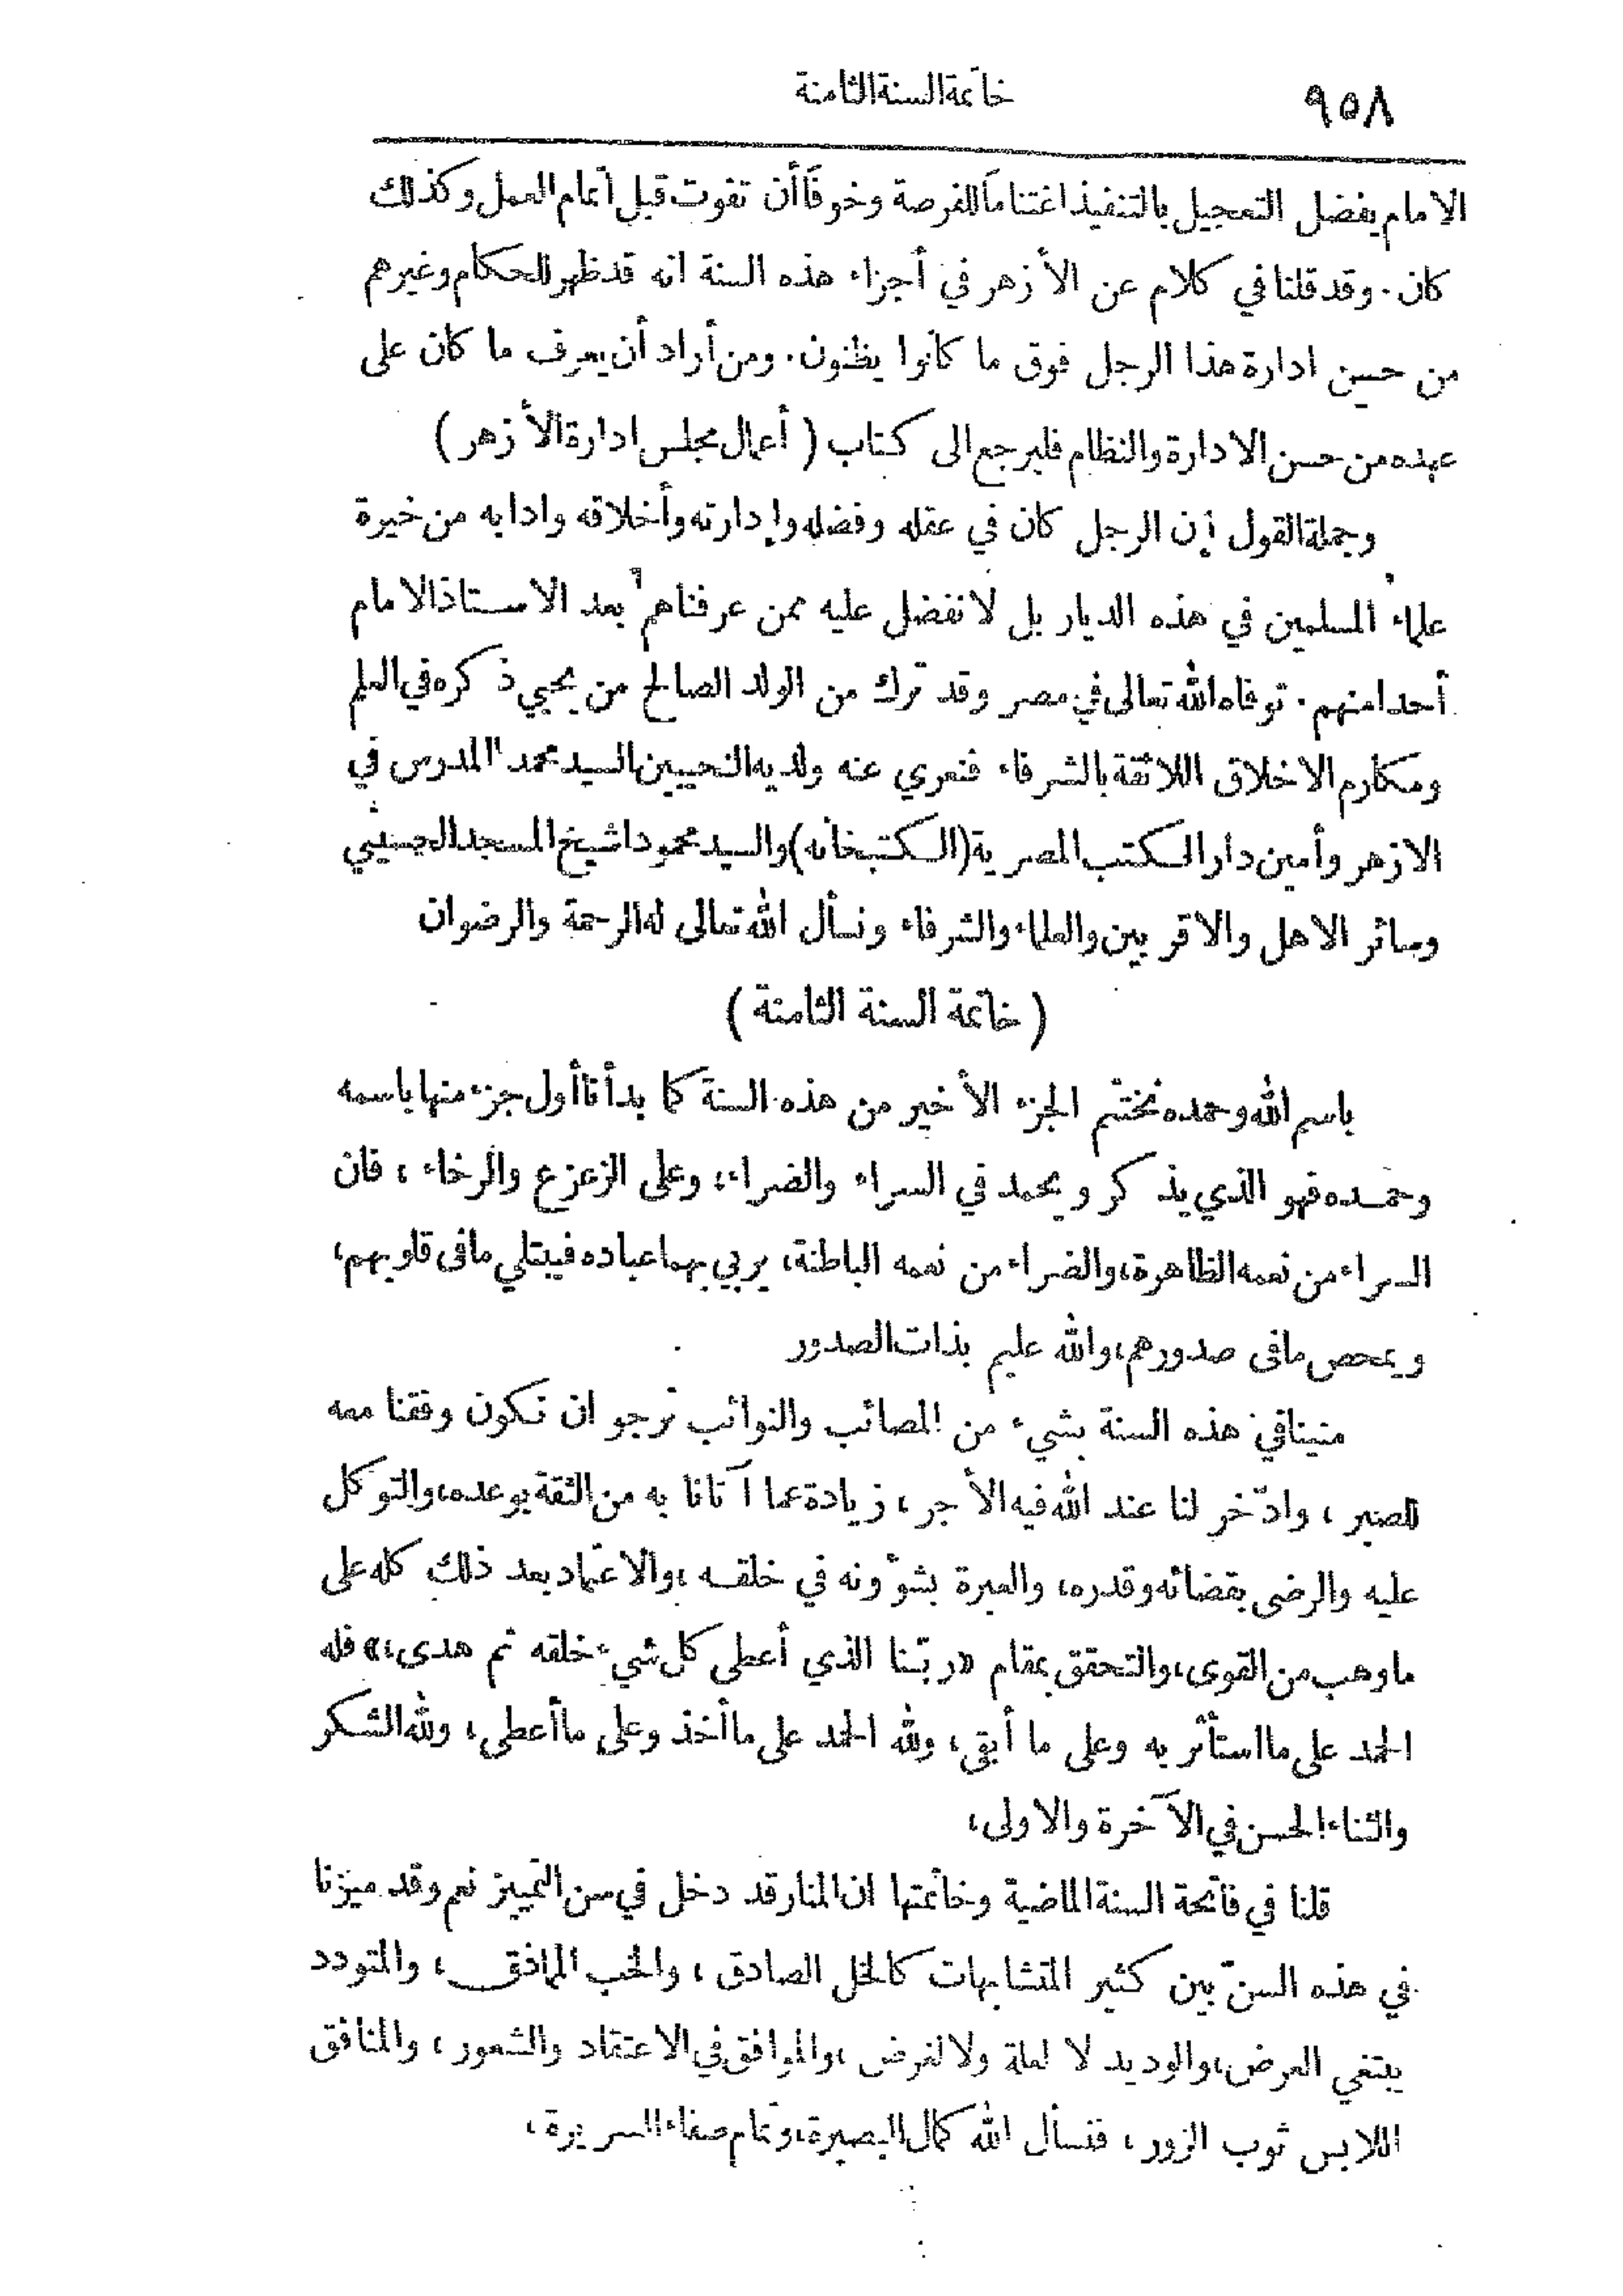 ٩٥٨
خاتمة السنة الثامنة
الامام يفضل التعجيل بالتنفيذ اغتناماً للفرصة وخوفاً أن تفوت قبل اتمام العمل وكذلك
كان. وقد قلنا في كلام عن الأزهر في أجزاء هذه السنة انه قد ظهر للحكام وغيرهم
من حسن ادارة هذا الرجل فوق ما كانوا يظنون. ومن أراد أن يعرف ما كان على
عهده من حسن الادارة والنظام فليرجع الى كتاب ( أعمال مجلس ادارة الأزهر )
وجملة القول إن الرجل كان في عقله وفضله وإدارته وأخلاقه وادابه من خيرة
علماء المسلمين في هذه الديار بل لا نفضل عليه ممن عرفناهم بعد الاستاذ الامام
أحدا منهم. توفاه الله تعالى في مصر وقد ترك من الولد الصالح من يحيي ذكره في العلم
ومكارم الاخلاق اللائقة بالشرفاء فنعزي عنه ولديه النجيبين السيد محمد المدرس في
الازهر وأمين دار الكتب المصرية (الكتبخانه) والسيد محمودا شيخ المسجد الحسيني
وسائر الاهل والاقربين والعلماء والشرفاء ونسأل الله تعالى له الرحمة والرضوان
( خاتمة السنة الثامنة )
باسم الله وحمده نختتم الجزء الأخير من هذه السنة كما بدأنا أول جزء منها باسمه
وحمده فهو الذي يذكر ويحمد في السراء والضراء، وعلى الزعزع والرخاء، فان
السراء من نعمه الظاهرة، والضراء من نعمه الباطنة، يربي بهما عباده فيبتلي مافى قلوبهم،
ويمحص مافى صدورهم، والله عليم بذات الصدور
منينا في هذه السنة بشيء من المصائب والنوائب نرجو ان نكون وفقنا معه
للصبر، وادّخر لنا عند الله فيه الأجر، زيادة عما آتانا به من الثقة بوعده، والتوكل
عليه والرضى بقضائه وقدره، والعبرة بشؤونه في خلقه، والاعتماد بعد ذلك كله على
ما وهب من القوى، والتحقق بمقام «ربّنا الذي أعطى كل شيء خلقه ثم هدى،» فله
الحمد على ما استأثر به وعلى ما أبقى، ولله الحمد على ما أخذ وعلى ما أعطى، ولله الشكر
والثناء الحسن في الآخرة والاولى،
قلنا في فاتحة السنة الماضية وخاتمتها ان المنار قد دخل في سن التمييز نعم وقد ميزنا
في هذه السنّ بين كثير المتشابهات كالخل الصادق، والخب المماذق، والمتودد
يبتغي العرض، والوديد لا لعلة ولا لغرض، والموافق في الاعتقاد والشعور، والمنافق
اللابس ثوب الزور، فنسأل الله كمال البصيرة، وتمام صفاء السريرة،